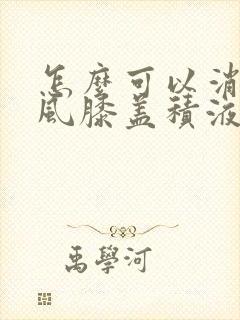 怎麼可以消
風膝盖積液
禹學河